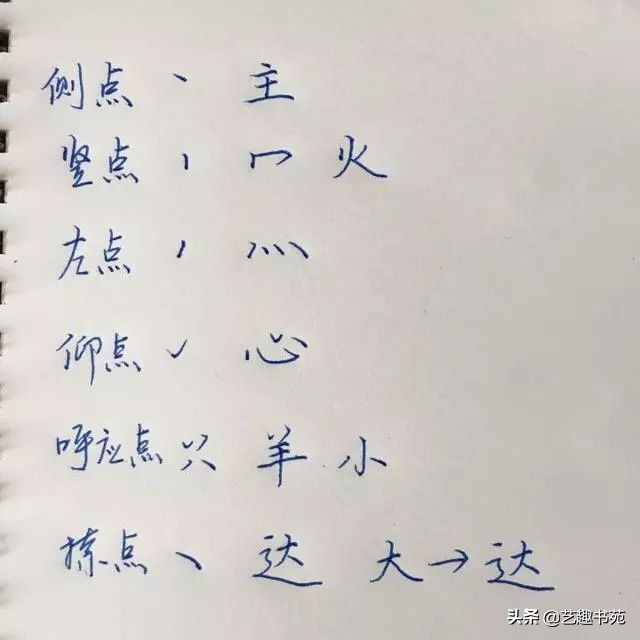 侧点 丶 主
竖点 冖 火
左点 灬
仰点 心
呼应点 羊 小
捺点 ㇏ 达 大→达
头条 @艺趣书苑